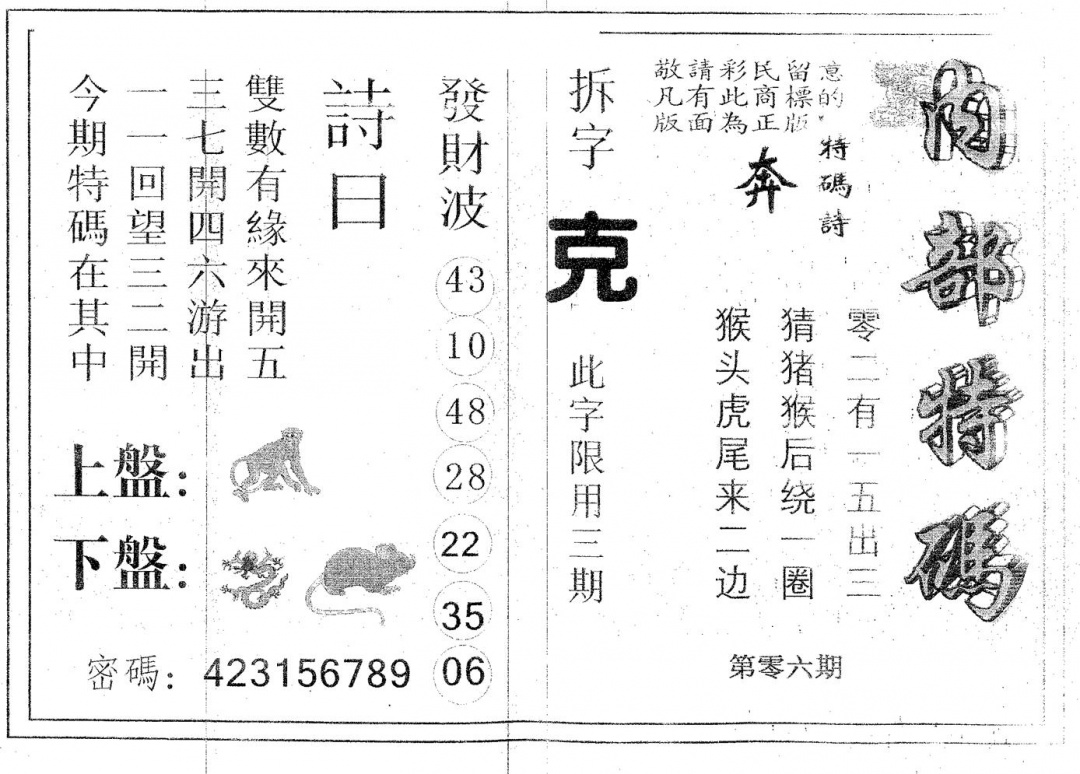 內部特碼
敬請彩民留意
凡有此商標的,
版面為正版
特碼詩
奔
零二有一五出三
猜猪猴后绕一圈
猴头虎尾来二边
第零六期
拆字
克
此字限用三期
發財波
43
10
48
28
22
35
06
詩曰
雙數有緣來開五
三七開四六游出
一一回望三二開
今期特碼在其中
上盤：
下盤：
密碼：423156789